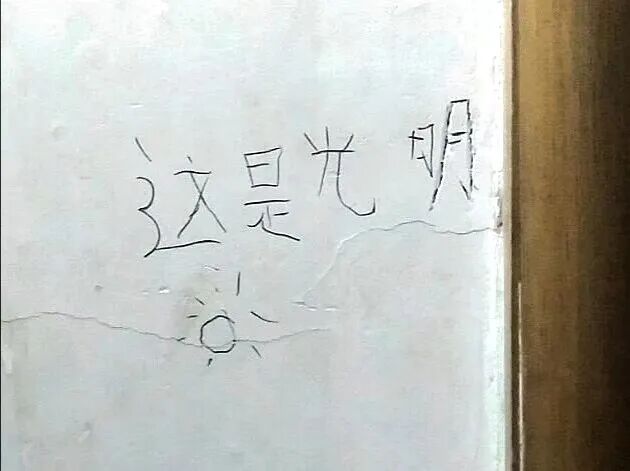 这是光明